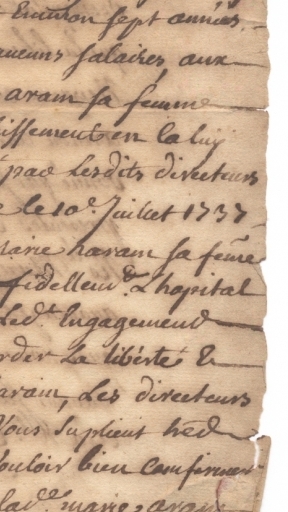 Environ sept années
aucuns salaires, aux
aram sa femme
issement en la luy
par Lesdits directeurs
le 10e. Juillet 1737
Marie haram sa feme
fidellem.t L'hopital
Led.t Engagement
order La liberté &
aram, Les directeurs
Vous suplient tres
vouloir bien confirmer
lad.e marie aram